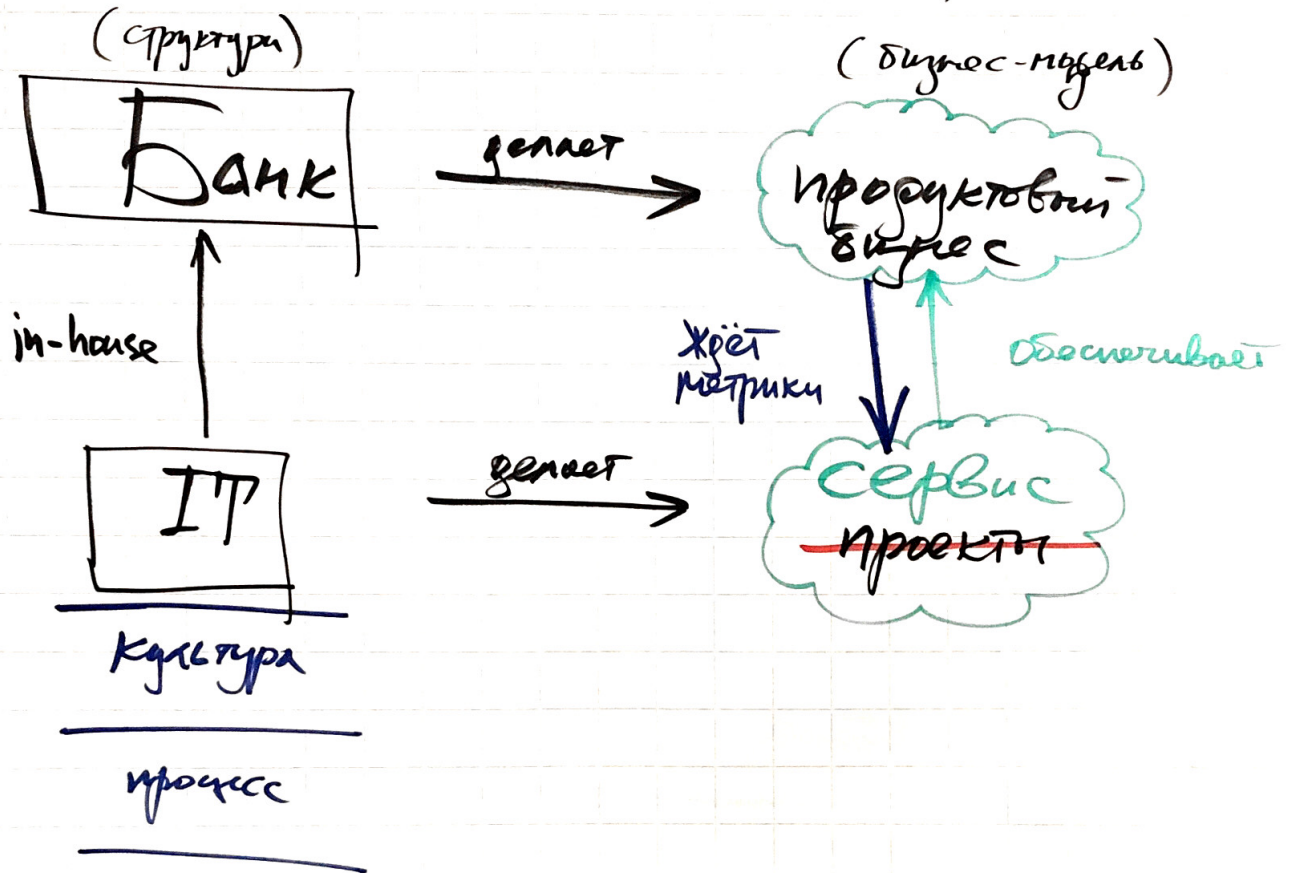 (структура)
(бизнес-модель)
Банк
делает
продуктовый
бизнес
in-house
Ждёт
метрики
обеспечивает
IT
делает
сервис
проекты
культура
процесс